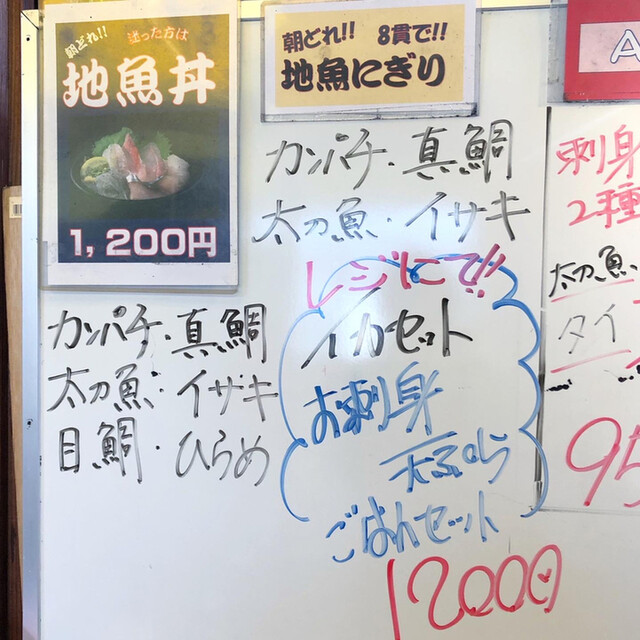 朝どれ!! 迷った方は
地魚丼
1,200円
カンパチ・真鯛
太刀魚・イサキ
目鯛・ひらめ
朝どれ!! 8貫で!!
地魚にぎり
カンパチ・真鯛
太刀魚・イサキ
レジにて!!
イカセット
お刺身
天ぷら
ごはんセット
1200円
A
刺身
2種
太刀魚
タイ
95